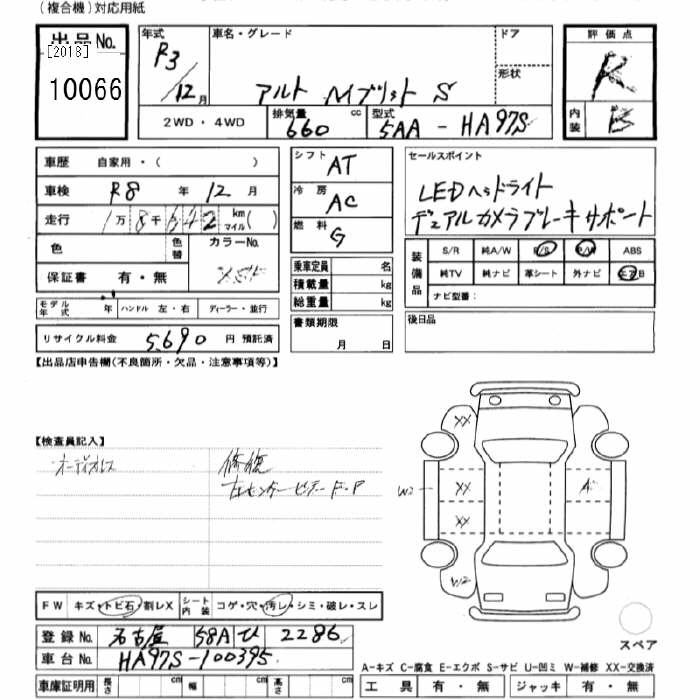 (複合機)対応用紙
出品No.
[2013]
10066
年式 R3/12月
車名・グレード アルト ハイブリッド S
ドア
形状
評価点 R
内装 B
2WD・4WD
排気量 660 cc
型式 5AA - HA97S
車歴 自家用・( )
車検 R8 年 12 月
走行 1万8千642 km マイル( )
色
色替
カラーNo.
保証書 有・無
モデル年式 年 ハンドル 左・右 ディーラー・並行
リサイクル料金 5,690 円 預託済
シフト AT
冷房 AC
燃料 G
乗車定員 名
積載量 kg
総重量 kg
書類期限
月 日
セールスポイント
LEDヘッドライト
デュアルカメラブレーキサポート
装備品
S/R 純A/W P/S P/W ABS
純TV 純ナビ 革シート 外ナビ エアB
ナビ型番:
後日品
【出品店申告欄(不良箇所・欠品・注意事項等)】
【検査員記入】
オーディオレス
修復
左センターピラー F・P
XX
W2
XX
A
XX
W2
スペア
FW キズ・トビ石・割レX
シート内装 コゲ・穴・汚レ・シミ・破レ・スレ
登録No. 名古屋 58A ひ 2286
車台No. HA97S-100395
車庫証明用 長さ cm 幅 cm 高さ cm
A-キズ C-腐食 E-エクボ S-サビ U-凹ミ W-補修 XX-交換済
工具 有・無 ジャッキ 有・無